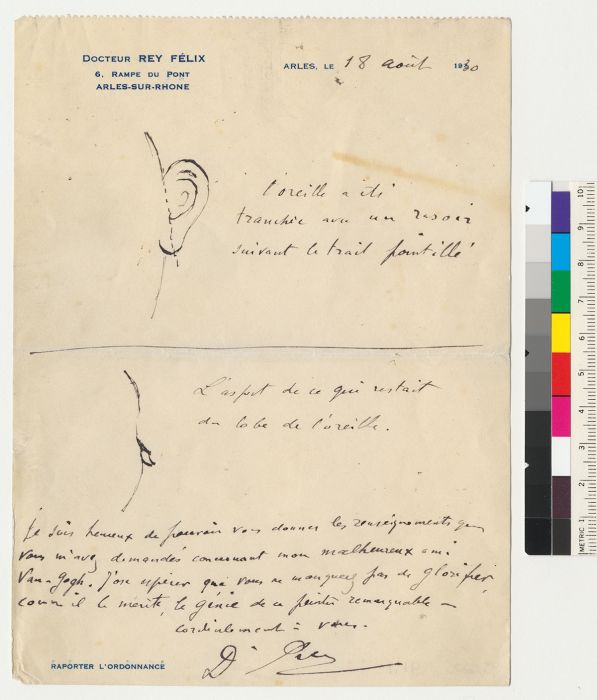 DOCTEUR REY FÉLIX
6, RAMPE DU PONT
ARLES-SUR-RHONE
ARLES, LE 18 août 1930
l'oreille a été
tranchée avec un rasoir
suivant le trait pointillé
L'aspect de ce qui restait
du lobe de l'oreille.
Je suis heureux de pouvoir vous donner les renseignements que
vous m'avez demandés concernant mon malheureux ami
Van-Gogh. J'ose espérer que vous ne manquerez pas de glorifier,
comme il le mérite, le génie de ce peintre remarquable —
cordialement à vous.
Dr Rey
RAPORTER L'ORDONNANCE
METRIC 1 2 3 4 5 6 7 8 9 10